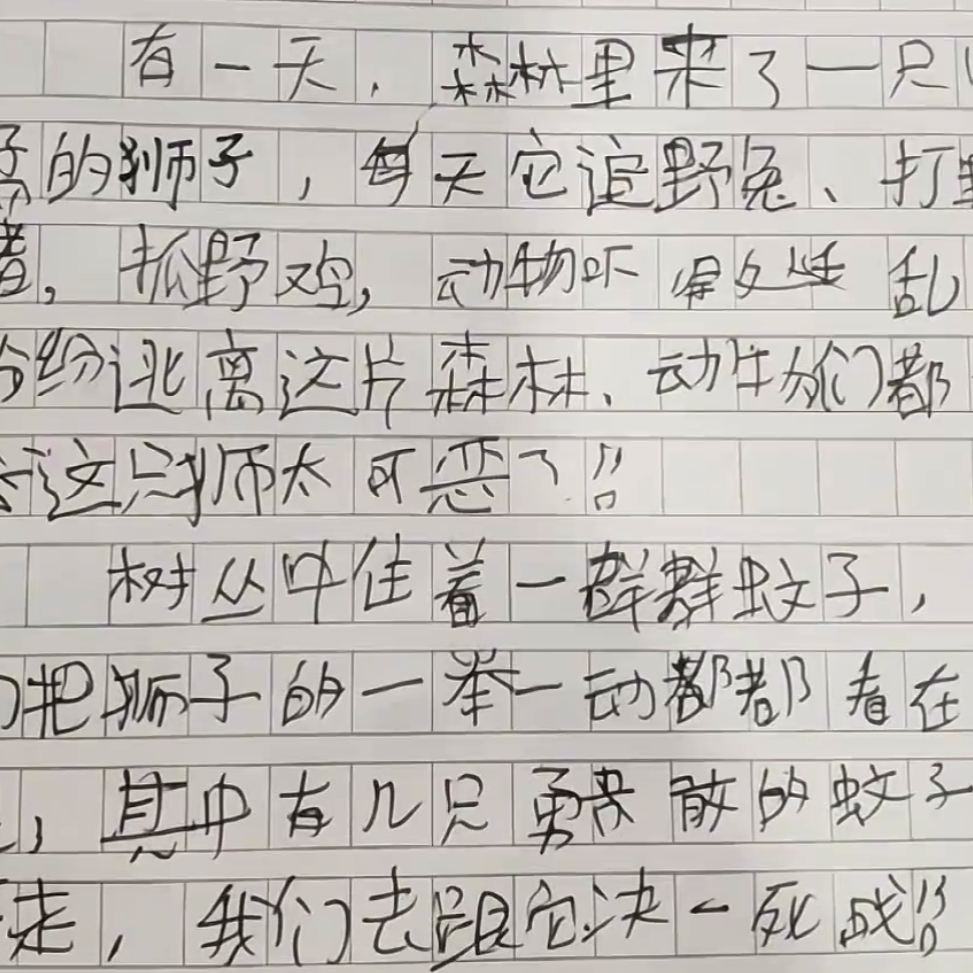 有一天，森林里来了一只
的狮子，每天它追野兔、打野
猪，抓野鸡，动物吓得处处乱
纷纷逃离这片森林、动物们都
这只狮太可恶了！！
树丛中住着一群群蚊子，
们把狮子的一举一动都都看在
，其中有几只勇敢的蚊子
走，我们去跟它决一死战！！